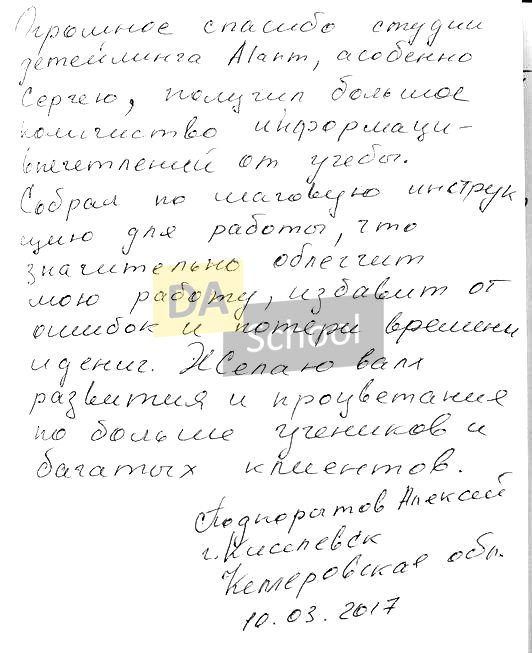 Огромное спасибо студии
детейлинга Alant, особенно
Сергею, получил большое
количиство информаци-
впечетлений от учебы.
Собрал по шаговую инструк
цию для работы, что
значительно облегчит
мою работу, избавит от
ошибок и потери времени
и дениг. Желаю вам
развития и процветания
по больше учеников и
багатых клиентов.
Подкорытов Алексей
г. Киселевск
Кемеровская обл.
10.03.2017
DA
School